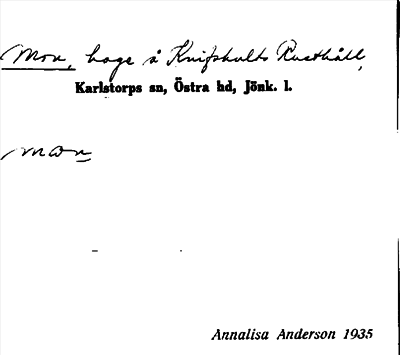 Mon, hage å Knifshults Rusthåll,
Karlstorps sn, Östra hd, Jönk. l.
mon
Annalisa Anderson 1935